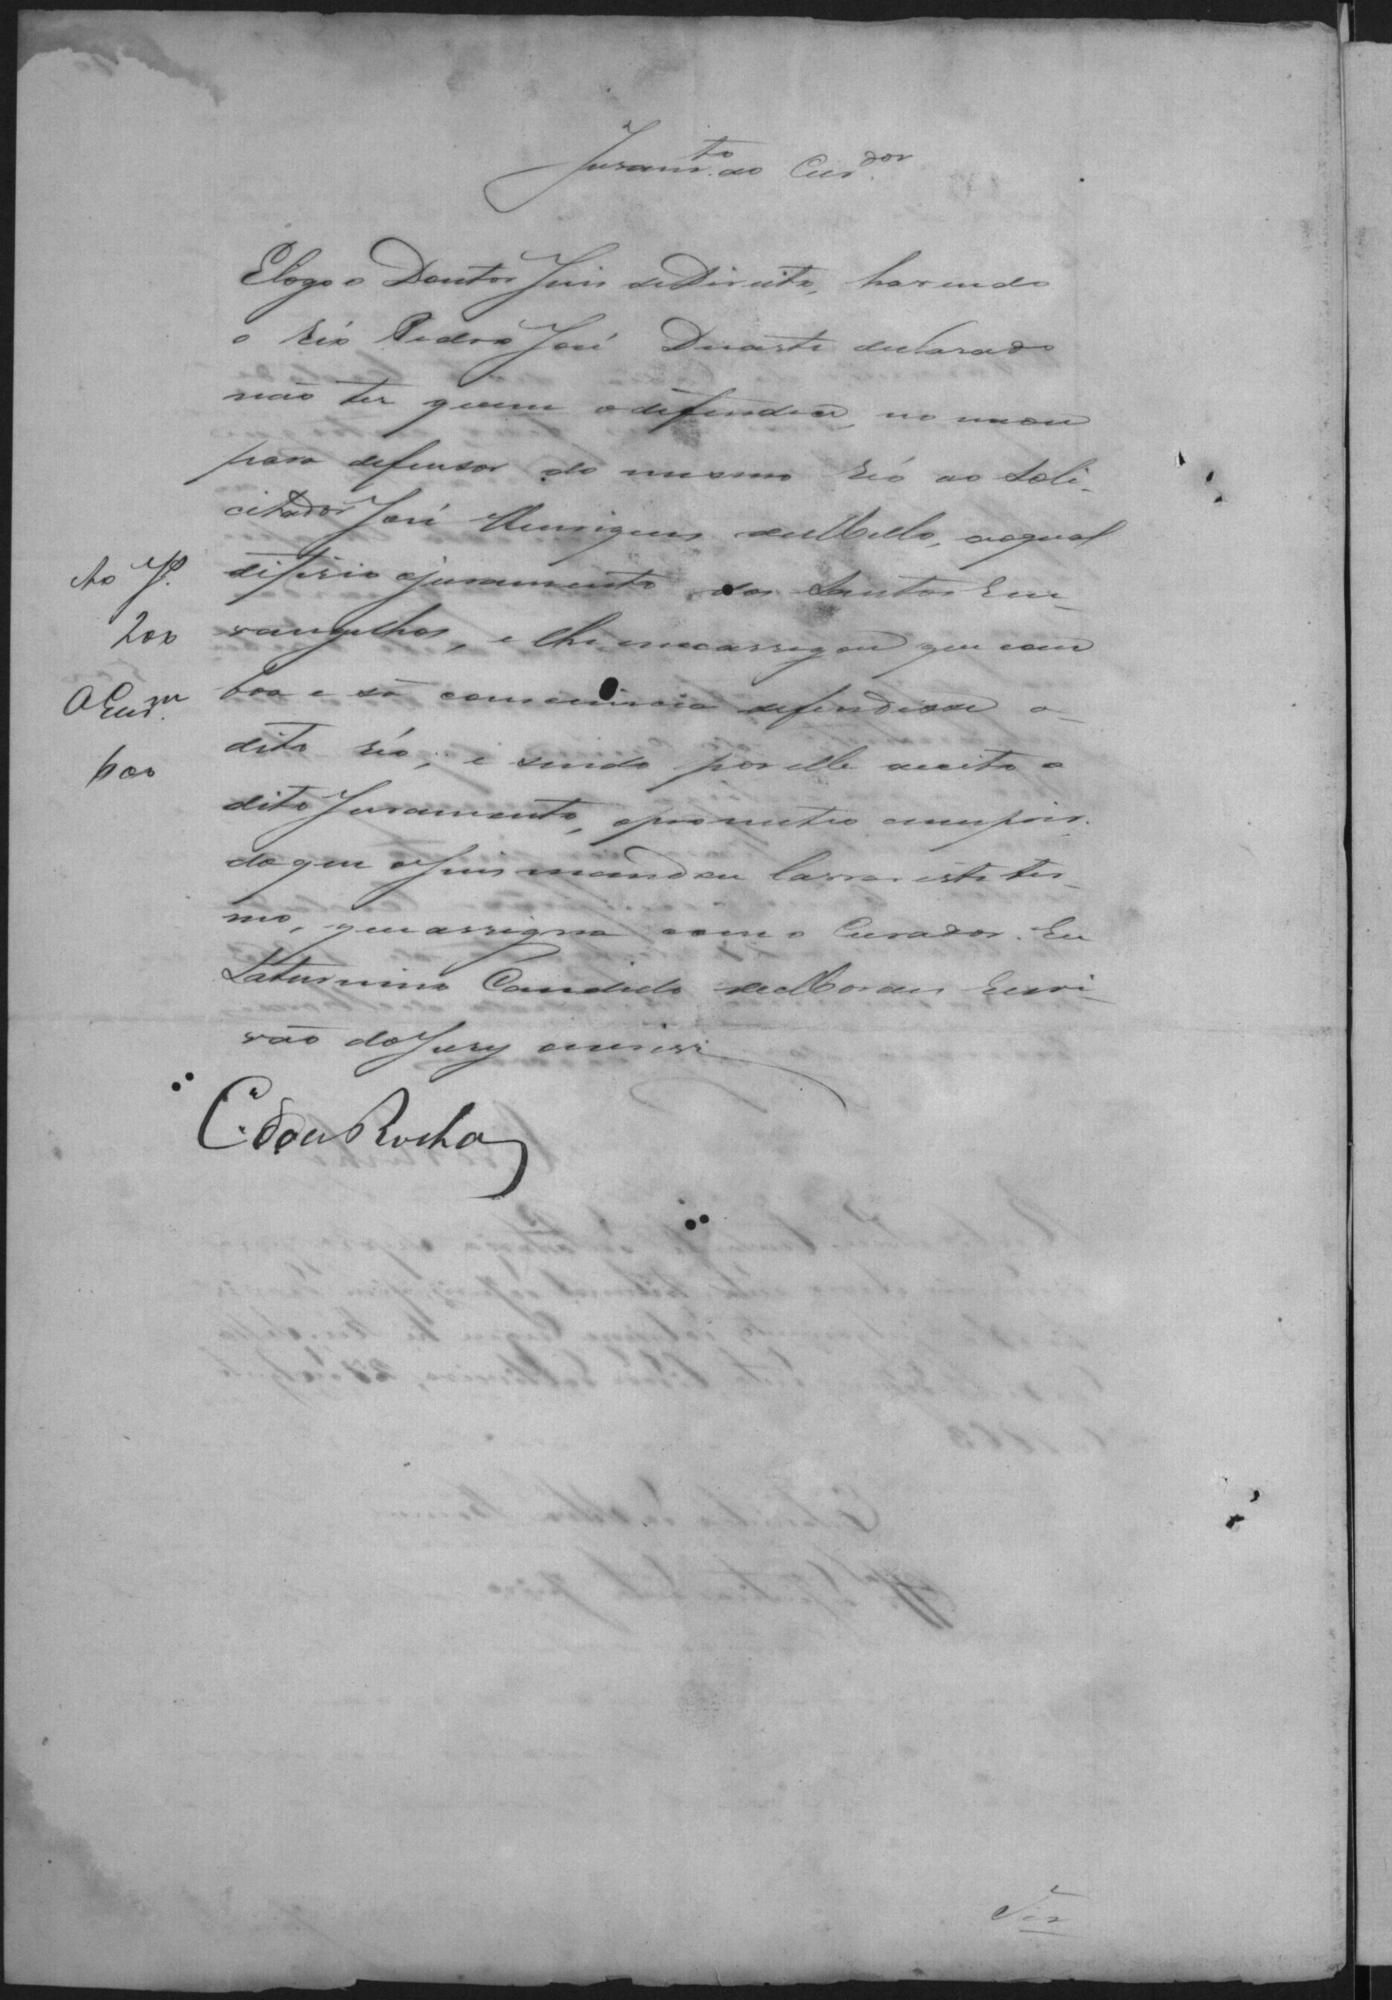 Juramto. ao Curdor.
E logo o Doutor Juis de Direito, havendo
o réo Pedro José Duarte declarado
não ter quem o defendêsse, nomeou
para defensor do mesmo réo ao Soli-
citador José Henriques de Mello, ao qual
diferio o juramento dos Santos Eu-
vangelhos, e lhe encarregou que com
boa e sã consciencia defendesse o
dito réo, e sendo por elle aceito o
dito Juramento, e prometteo cumprir.
do que o Juis mandou lavrar este ter-
mo, que assigna com o Curador. Eu
Saturnino Candido de Moraes Escri-
vão do Jury escrevi
Ao J.
200
Ao Escrm.
600
C. da Rocha